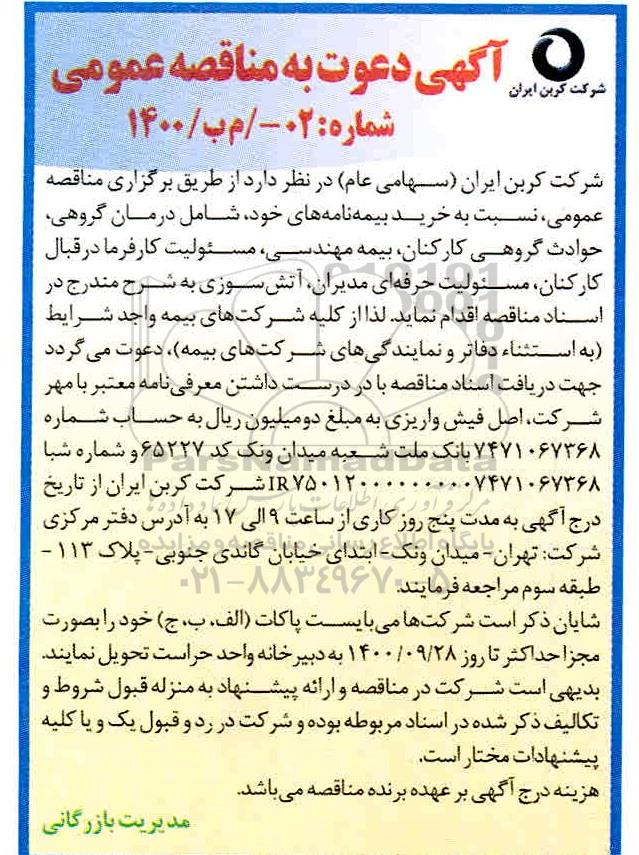 شرکت کربن ایران
آگهی دعوت به مناقصه عمومی
شماره: ۰۲-/م‌ب/۱۴۰۰
شرکت کربن ایران (سهامی عام) در نظر دارد از طریق برگزاری مناقصه
عمومی، نسبت به خرید بیمه‌نامه‌های خود، شامل درمان گروهی،
حوادث گروهی کارکنان، بیمه مهندسی، مسئولیت کارفرما در قبال
کارکنان، مسئولیت حرفه‌ای مدیران، آتش‌سوزی به شرح مندرج در
اسناد مناقصه اقدام نماید. لذا از کلیه شرکت‌های بیمه واجد شرایط
(به استثناء دفاتر و نمایندگی‌های شرکت‌های بیمه)، دعوت می‌گردد
جهت دریافت اسناد مناقصه با در درست داشتن معرفی‌نامه معتبر با مهر
شرکت، اصل فیش واریزی به مبلغ دو میلیون ریال به حساب شماره
۷۴۷۱۰۶۷۳۶۸ بانک ملت شعبه میدان ونک کد ۶۵۲۲۷ و شماره شبا
IR۷۵۰۱۲۰۰۰۰۰۰۰۰۰۰۷۴۷۱۰۶۷۳۶۸ شرکت کربن ایران از تاریخ
درج آگهی به مدت پنج روز کاری از ساعت ۹ الی ۱۷ به آدرس دفتر مرکزی
شرکت: تهران- میدان ونک- ابتدای خیابان گاندی جنوبی- پلاک ۱۱۳ -
طبقه سوم مراجعه فرمایند.
شایان ذکر است شرکت‌ها می‌بایست پاکات (الف، ب، ج) خود را بصورت
مجزا حداکثر تا روز ۱۴۰۰/۰۹/۲۸ به دبیرخانه واحد حراست تحویل نمایند.
بدیهی است شرکت در مناقصه و ارائه پیشنهاد به منزله قبول شروط و
تکالیف ذکر شده در اسناد مربوطه بوده و شرکت در رد و قبول یک و یا کلیه
پیشنهادات مختار است.
هزینه درج آگهی بر عهده برنده مناقصه می‌باشد.
مدیریت بازرگانی
ParsNamadData
پایگاه اطلاع رسانی مناقصه و مزایده
۰۲۱-۸۸۳۴۹۶۷۰-۵